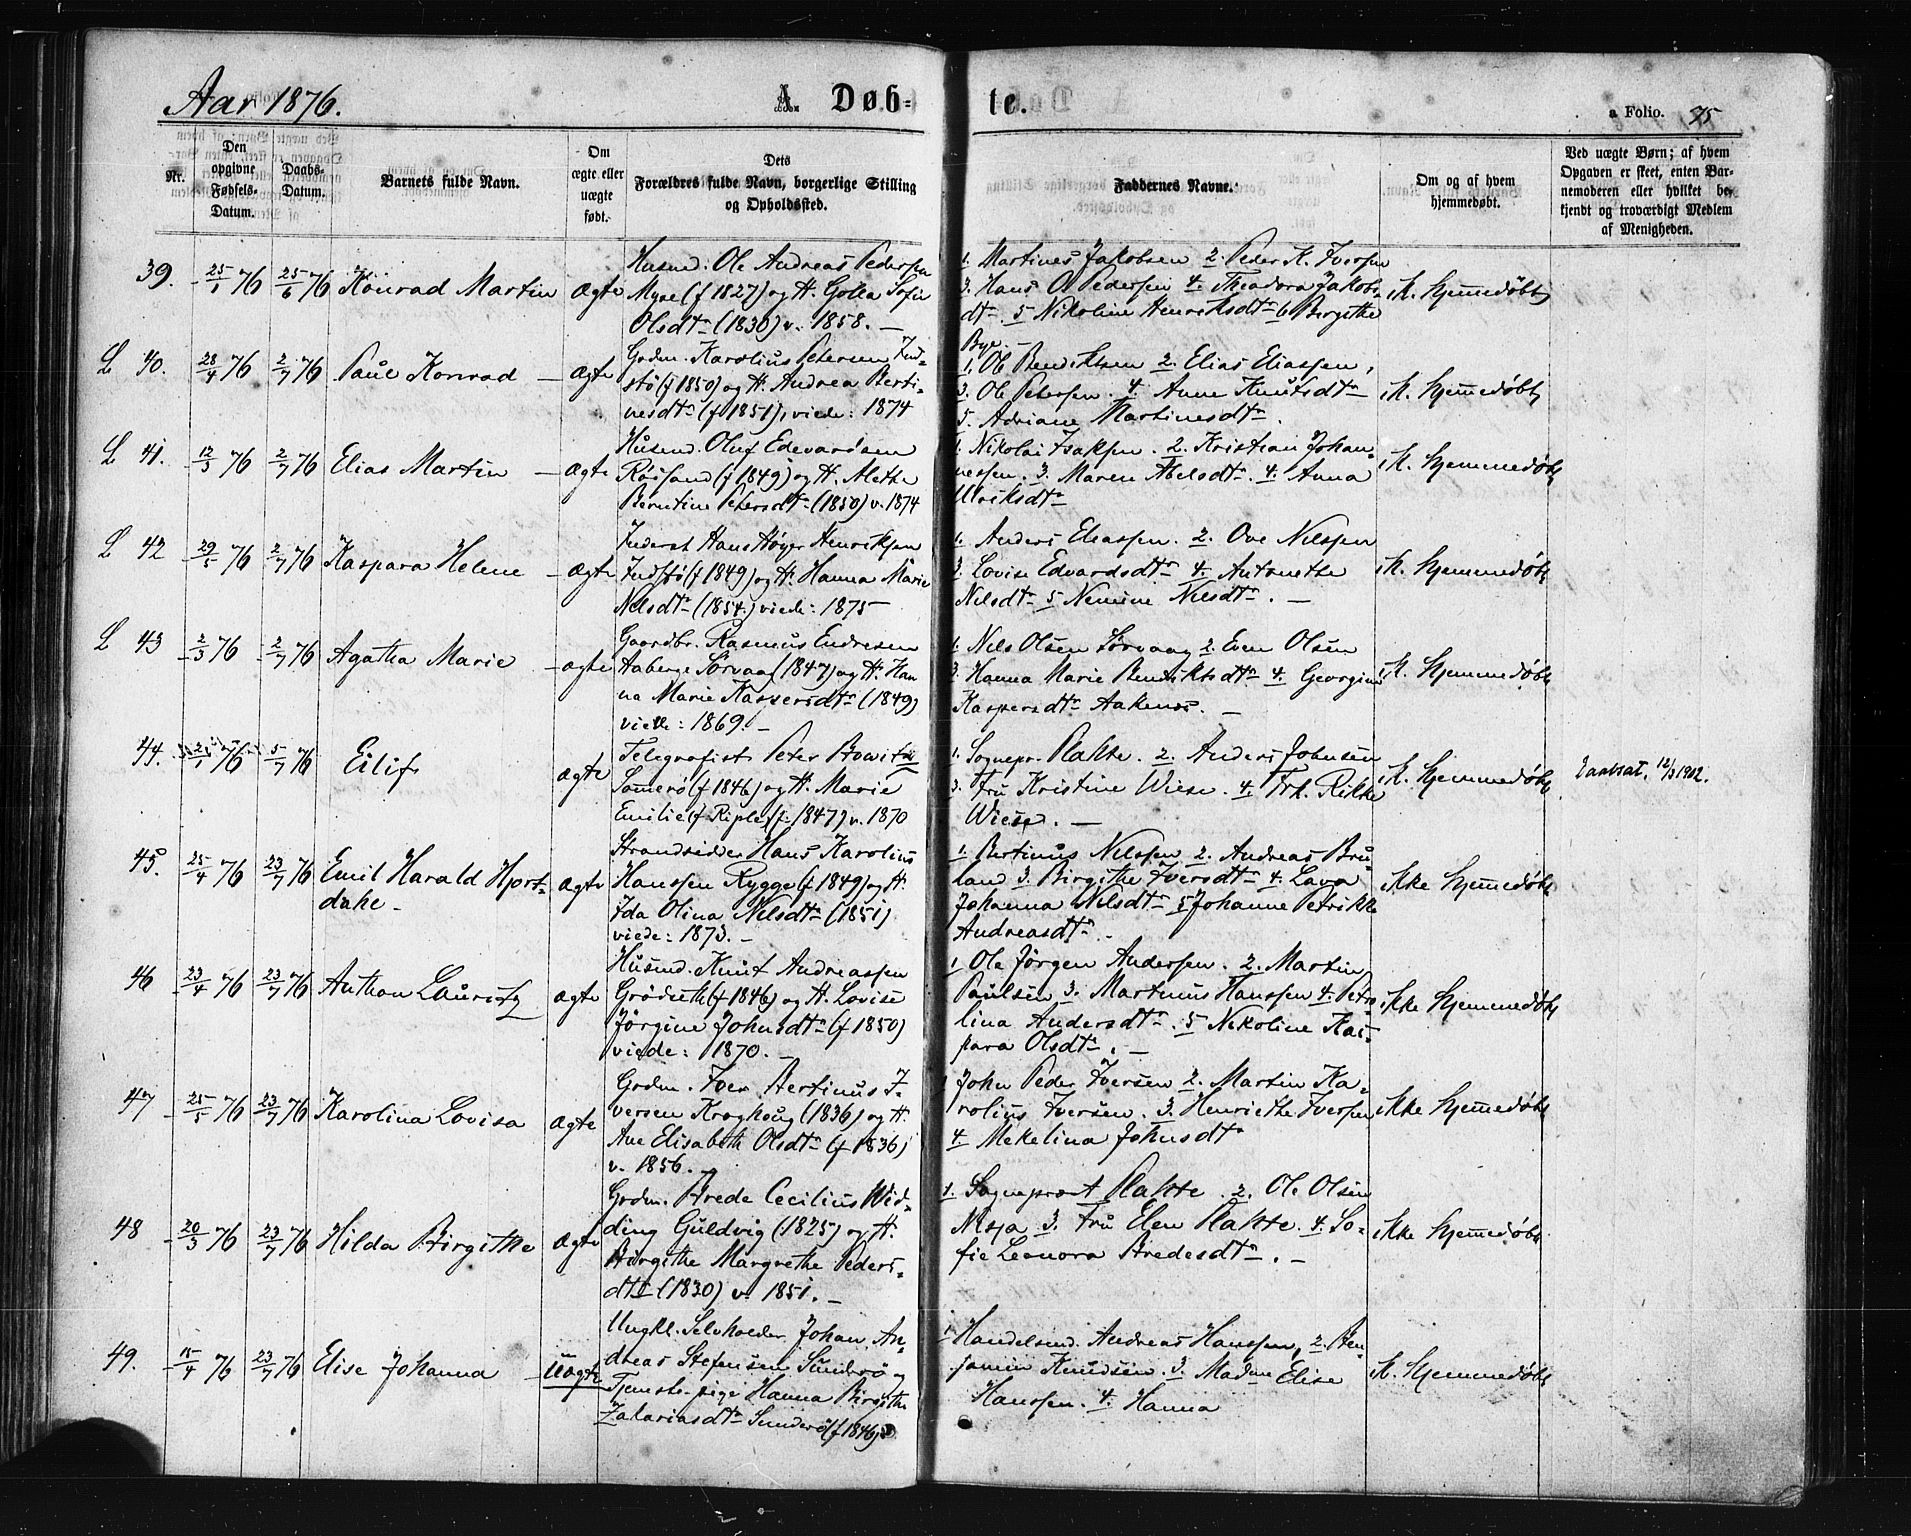 Aar 1876.
A. Døb-
te.
a Folio. 75
Nr.
Den opgivne Fødsels-Datum.
Daabs-Datum.
Barnets fulde Navn.
Om ægte eller uægte født.
Dets Forældres fulde Navn, borgerlige Stilling og Opholdssted.
Faddernes Navne.
Om og af hvem hjemmedøbt.
Ved uægte Børn; af hvem Opgaven er skeet, enten Barnemoderen eller hvilket bekjendt og troværdigt Medlem af Menigheden.
39. 25/1 76 25/6 76 Konrad Martin ægte
Husmd. Ole Andreas Pedersen
Myre (f 1827) og H. Golla Sofie
Olsdtr (1830) v. 1858. —
1. Martines Jakobsen 2. Peder K. Iversen
3. Hans O Pedersen 4. Theodora Jakobs-
dtr. 5 Nikoline Henriksdtr 6 Birgithe
Bye. —
ik. hjemmedøbt
L 40. 28/4 76 2/7 76 Paul Konrad — ægte
Grdm. Karolius Petersen Ind-
stø (f 1850) og H. Andrea Berti-
nesdtr (f 1851), viede: 1874
1. Ol Bendiktsen 2. Elias Eliassen,
3. Ole Petersen. 4. Anne Knutsdtr
5. Adriane Martinesdtr.
ik. hjemmedøbt
L 41. 12/3 76 2/7 76 Elias Martin — ægte
Husmd. Oluf Edevardsen
Røisand (f 1849) og H. Alethe
Berntine Petersdtr (1850) v. 1874
1. Nikolai Isaksen. 2. Kristian Johan-
nessen. 3. Maren Abelsdtr. 4. Anna
Ulriksdtr
ik. hjemmedøbt
L 42 29/5 76 2/7 76 Kaspara Helene — ægte
Inderst Hans Høyer Henriksen
Indstø (f 1849) og H. Hanna Marie
Nilsdtr (1854) viede: 1875 —
1. Anders Eliassen. 2. Ove Nilssen
3. Lovise Edvardsdtr 4. Antonethe
Nilsdtr 5 Nemine Nilsdtr. —
ik. hjemmedøbt
L 43 2/3 76 2/7 76 Agatha Marie — ægte
Gaardbr. Rasmus Endresen
Aaberge Sørvaag (1847) og H. Han
na Marie Kaspersdtr (1849)
viede: 1869. —
1. Nils Olsen Sørvaag 2. Even Olsen
3. Hanna Marie Bendiktsdtr 4. Georgine
Kaspersdtr Aakenes. —
ik. hjemmedøbt
44. 21/1 76 5/7 76 Eilif ægte
Telegrafist Peter
Somerø (f 1846) og H. Marie
Emilie (f Riple) (f. 1847) v. 1870
1. Sognepr. Plahte. 2. Anders Johnsen
3. Fru Kristine Wiese. 4. Frk. Rikke
Wiese. —
ik. hjemmedøbt
Daabsat. 12/3 1902.
45. 25/4 76 23/7 76 Emil Harald Hjort-
dahl — ægte
Strandsidder Hans Karolius
Hanssen Rygge (f 1849) og H.
Ida Olina Nilsdtr (1851)
viede: 1873. —
1. Bertinus Nilssen 2. Andreas Bru-
land 3. Birgithe Iversdtr 4. Lava
Johanna Nilsdtr 5 Johanne Petrikke
Andreasdtr. —
ikke hjemmedøbt
46 23/4 76 23/7 76 Anthon Lauritz ægte
Husmd. Knut Andreassen
Grödieth (f 1846) og H. Lovise
Jörgine Johnsdtr (f 1850)
viede: 1870. —
1 Ole Jörgen Andersen. 2. Martin
Paulsen 3. Martinus Hanssen 4. Petro-
lina Andersdtr. 5 Nikoline Kas-
para Olsdtr. —
ikke hjemmedøbt
47 25/5 76 23/7 76 Karolina Lovisa ægte
Grdm. Iver Bertinus I-
versen Kroghoug (1836) og H.
Ane Elisabeth Olsdtr (f 1836)
v. 1856. —
John Peder Iversen 2. Martin Ka-
rolius Iversen. 3. Henriethe Iversen
4. Mekelina Johnsdtr
ikke hjemmedøbt
48 20/3 76 23/7 76 Hilda Birgithe ægte
Grdm. Brede Cecilius Wid-
ding Guldvig (1825) og H.
Birgithe Margrethe Peders-
dtr (1830) v. 1851. —
1. Sogneprest Plahte. 2. Ole Olsen
Nesja 3. Fru Elen Plahte. 4. So-
fie Leonora Bredesdtr. —
ikke hjemmedøbt
49. 15/4 76 23/7 76 Elise Johanna — uægte
Ungkl. Selvholder Johan An-
dreas Stefensen Sunderø og
Tjenstepige Hanna Birgithe
Zakariasdtr Sunderø (f 1846)
1 Handelsmd. Andreas Hanssen, 2. Ben-
jamin Knudsen 3. Madme Elise
Hanssen. 4. Hanna
ik. hjemmedøbt